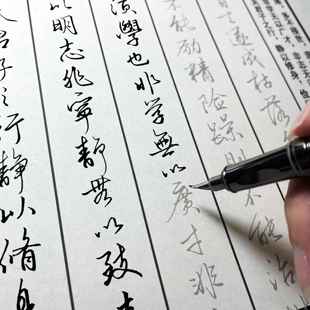 静以修身
遂成枯落
能勵精險躁則不能治
須學也非學無以廣才非
以明志非寧靜無以致
君子之行靜以脩身